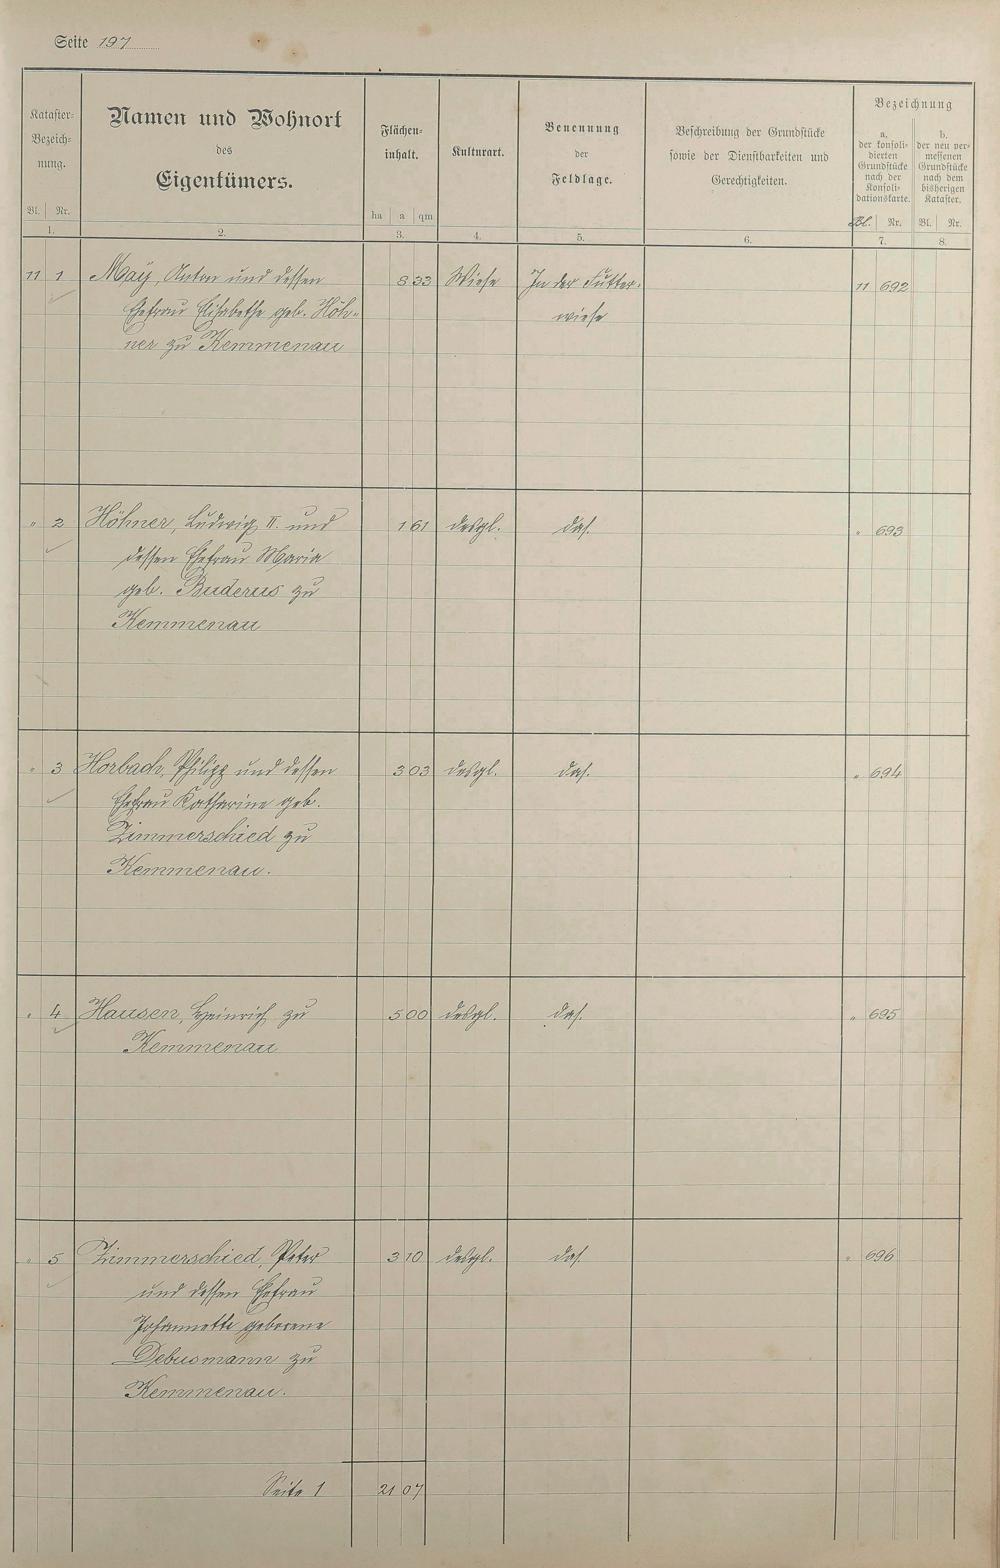 Seite 197
Kataster-
Bezeich-
nung.
Bl. Nr.
1.
Namen und Wohnort
des
Eigentümers.
2.
Flächen-
inhalt.
ha a qm
3.
Kulturart.
4.
Benennung
der
Feldlage.
5.
Beschreibung der Grundstücke
sowie der Dienstbarkeiten und
Gerechtigkeiten.
6.
Bezeichnung
a.
der konsoli-
dierten
Grundstücke
nach der
Konsoli-
dationskarte.
Bl. Nr.
7.
b.
der neu ver-
messenen
Grundstücke
nach dem
bisherigen
Kataster.
Bl. Nr.
8.
11 1 Maÿ, Anton und dessen 8 33 Wiese In der Futter- 11 692
Ehefrau Elisabethe geb. Höh- wiese
ner zu Kemmenau
" 2 Höhner, Ludwig II. und 1 61 desgl. das. " 693
dessen Ehefrau Maria
geb. Buderus zu
Kemmenau
" 3 Horbach, Philipp und dessen 3 03 desgl. das. " 694
Ehefrau Katharine geb.
Zimmerschied zu
Kemmenau.
" 4 Hausen, Heinrich zu 5 00 desgl. das. " 695
Kemmenau
" 5 Zimmerschied, Peter 3 10 desgl. das. " 696
und dessen Ehefrau
Johannette geborene
Debusmann zu
Kemmenau.
Seite 1 21 07